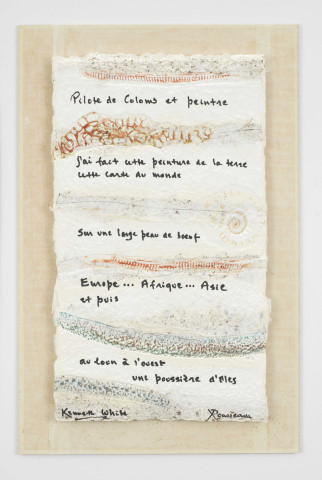 Pilote de Colomb et peintre
J'ai fait cette peinture de la terre
cette carte du monde
sur une large peau de boeuf
Europe... Afrique... Asie
et puis
au loin à l'ouest
une poussière d'îles
Kenneth White